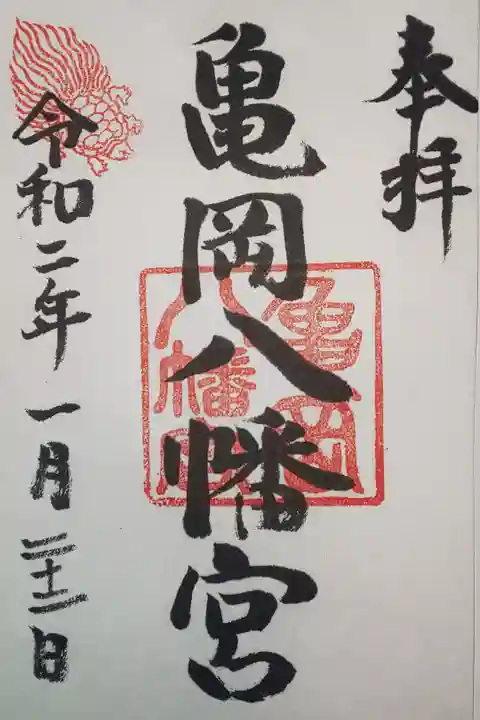 奉拝
亀岡八幡宮
亀岡
八幡宮
令和二年一月二十二日